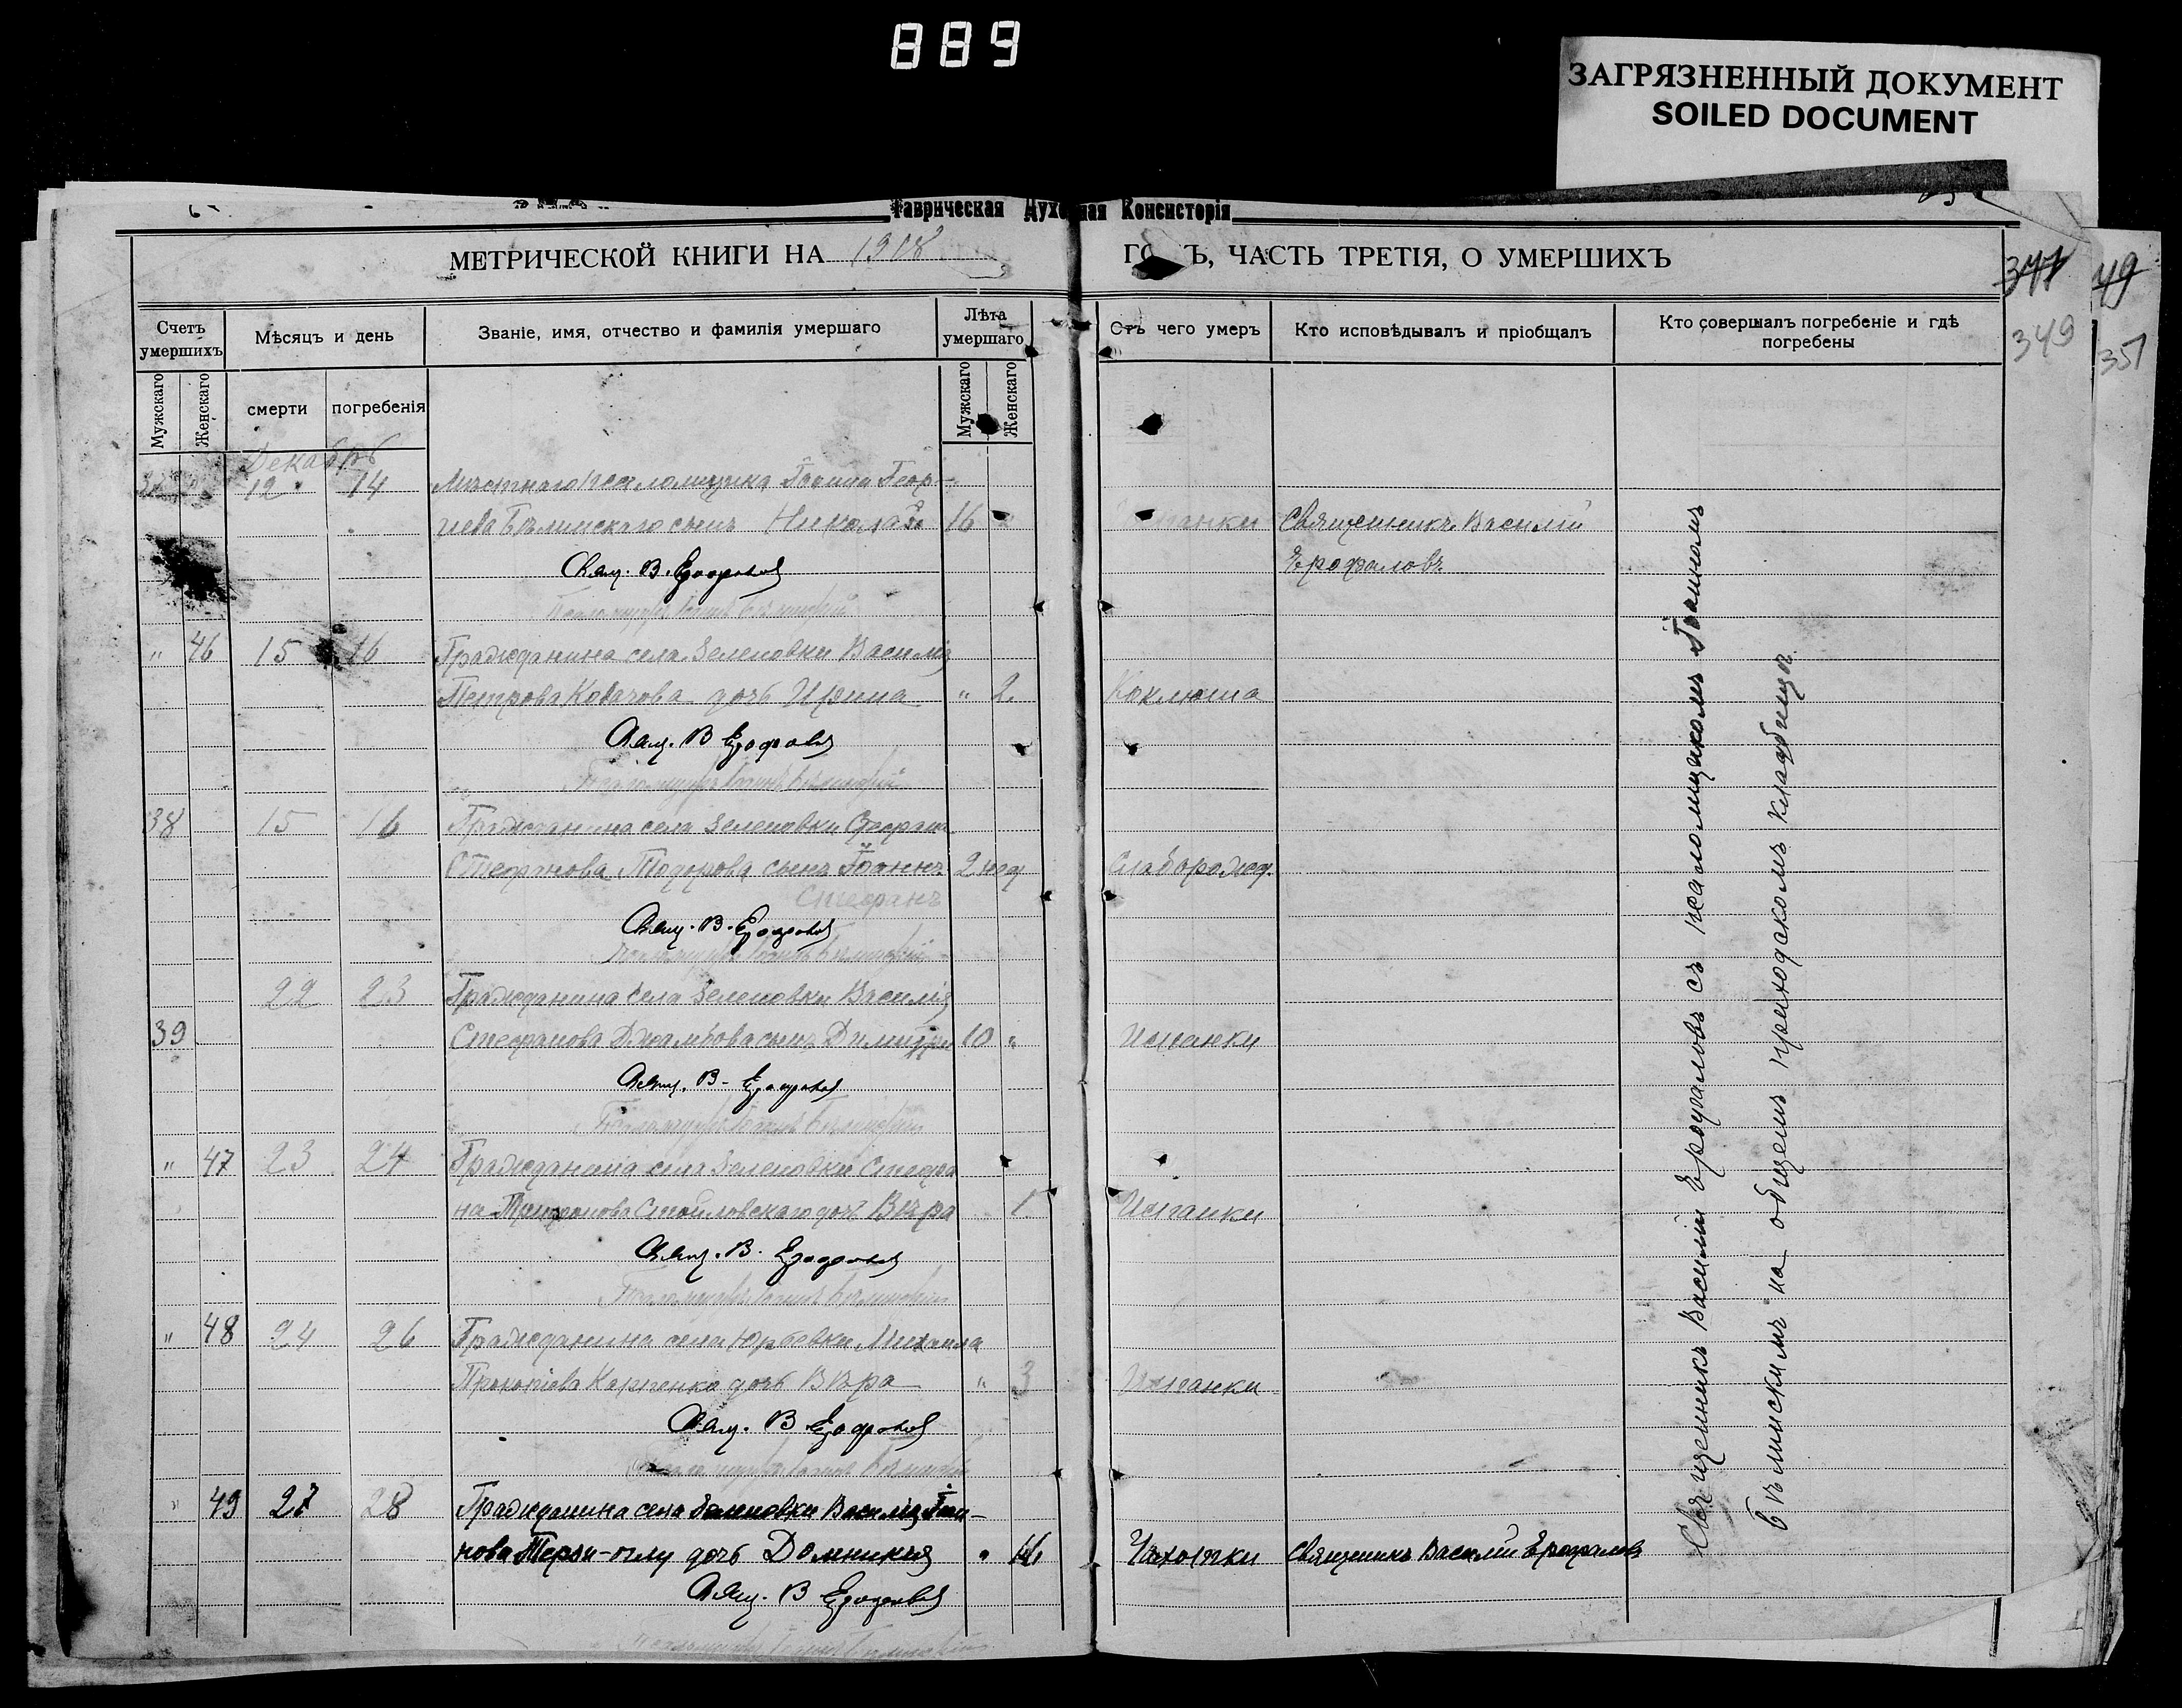 889
ЗАГРЯЗНЕННЫЙ ДОКУМЕНТ
SOILED DOCUMENT
Таврическая Духовная Консисторія
МЕТРИЧЕСКОЙ КНИГИ НА 1918 ГОДЪ, ЧАСТЬ ТРЕТІЯ, О УМЕРШИХЪ
341 49
349 351
Счетъ умершихъ
Мѣсяцъ и день
Званіе, имя, отчество и фамилія умершаго
Лѣта умершаго
Отъ чего умеръ
Кто исповѣдывалъ и пріобщалъ
Кто совершалъ погребеніе и гдѣ погребены
Мужскаго Женскаго смерти погребенія Мужскаго Женскаго
Декабрь
37 12 14 Мѣстнаго псаломщика Іоанна Геор-
гіева Бѣлинскаго сынъ Николай 16 Испанки Священникъ Василій
Свящ. В. Ерофаловъ Ерофаловъ
Псаломщикъ Іоаннъ Бѣлинскій
" 46 15 16 Гражданина села Зеленовки Василія
Петрова Ковачова дочь Ирина " 2. Коклюша
Свящ. В Ерофаловъ
Псаломщикъ Іоаннъ Бѣлинскій
38 15 16 Гражданина села Зеленовки Стефана
Стефанова Тодорова сынъ Іоаннъ 2 нед Слаборожд.
Стефанъ
Свящ. В. Ерофаловъ
Псаломщикъ Іоаннъ Бѣлинскій
22 23 Гражданина села Зеленовки Василія
39 Стефанова сынъ Димитрій 10 " Испанки
Свящ. В. Ерофаловъ
Псаломщикъ Іоаннъ Бѣлинскій
" 47 23 24 Гражданина села Зеленовки Стефа
на Трифонова Стоиловскаго дочь Вѣра 1. Испанки
Свящ. В. Ерофаловъ
Псаломщикъ Іоаннъ Бѣлинскій
" 48 24 26 Гражданина села Юрьевки Михаила
Прокопіева Карпенко дочь Вѣра " 3 Испанки
Свящ. В Ерофаловъ
Псаломщикъ Іоаннъ Бѣлинскій
" 49 27 28 Гражданина села Зеленовки Василія Іоан-
нова Терзи-оглу дочь Домникія " Чахотки Священникъ Василій Ерофаловъ
Свящ. В Ерофаловъ
Псаломщикъ Іоаннъ Бѣлинскій
Священникъ Василій Ерофаловъ съ псаломщикомъ Іоанномъ
Бѣлинскимъ на общемъ приходскомъ кладбищѣ.